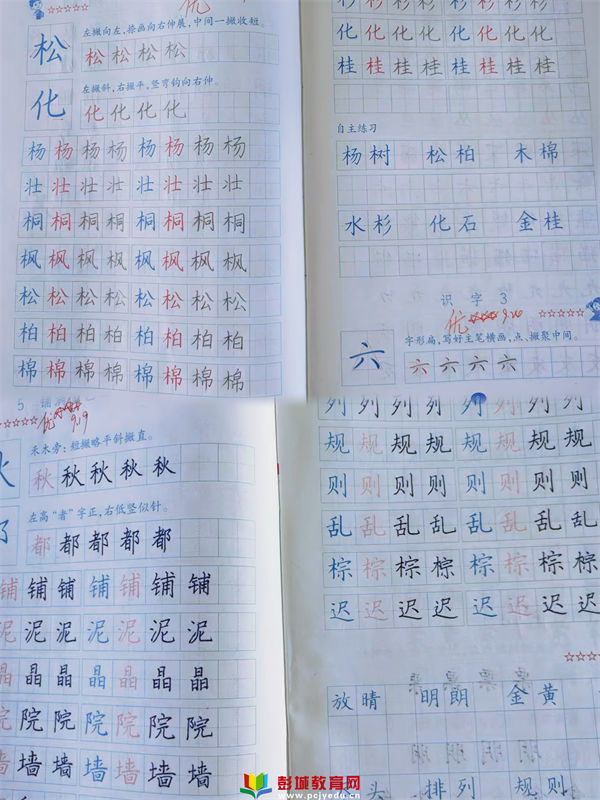 优
松 左撇向左,捺画向右伸展,中间一撇收短。
松 松 松 松
化 左撇斜,右撇平,竖弯钩向右伸。
化 化 化 化
杨 杨 杨 杨 杨 杨 杨 杨
壮 壮 壮 壮 壮 壮 壮 壮
桐 桐 桐 桐 桐 桐 桐 桐
枫 枫 枫 枫 枫 枫 枫 枫
松 松 松 松 松 松 松 松
柏 柏 柏 柏 柏 柏 柏 柏
棉 棉 棉 棉 棉 棉 棉 棉
杉 杉 杉 杉 杉 杉 杉 杉
化 化 化 化 化 化 化 化
桂 桂 桂 桂 桂 桂 桂 桂
自主练习
杨树 松柏 木棉
水杉 化石 金桂
识字 3
优 9.20
六 字形扁,写好主笔横画,点、撇聚中间。
六 六 六 六
5
优 9.19
秋 禾木旁:短撇略平斜撇直。
秋 秋 秋 秋 秋
都 左高“者”字正,右低竖似针。
都 都 都 都 都
铺 铺 铺 铺 铺 铺 铺
泥 泥 泥 泥 泥 泥 泥
晶 晶 晶 晶 晶 晶 晶
院 院 院 院 院 院 院
墙 墙 墙 墙 墙 墙 墙
列 列 列 列 列 列 列 列
规 规 规 规 规 规 规 规
则 则 则 则 则 则 则 则
乱 乱 乱 乱 乱 乱 乱 乱
棕 棕 棕 棕 棕 棕 棕 棕
迟 迟 迟 迟 迟 迟 迟 迟
放晴 明朗 金黄
头 排列 规则
彭城教育网
www.pcjyedu.cn